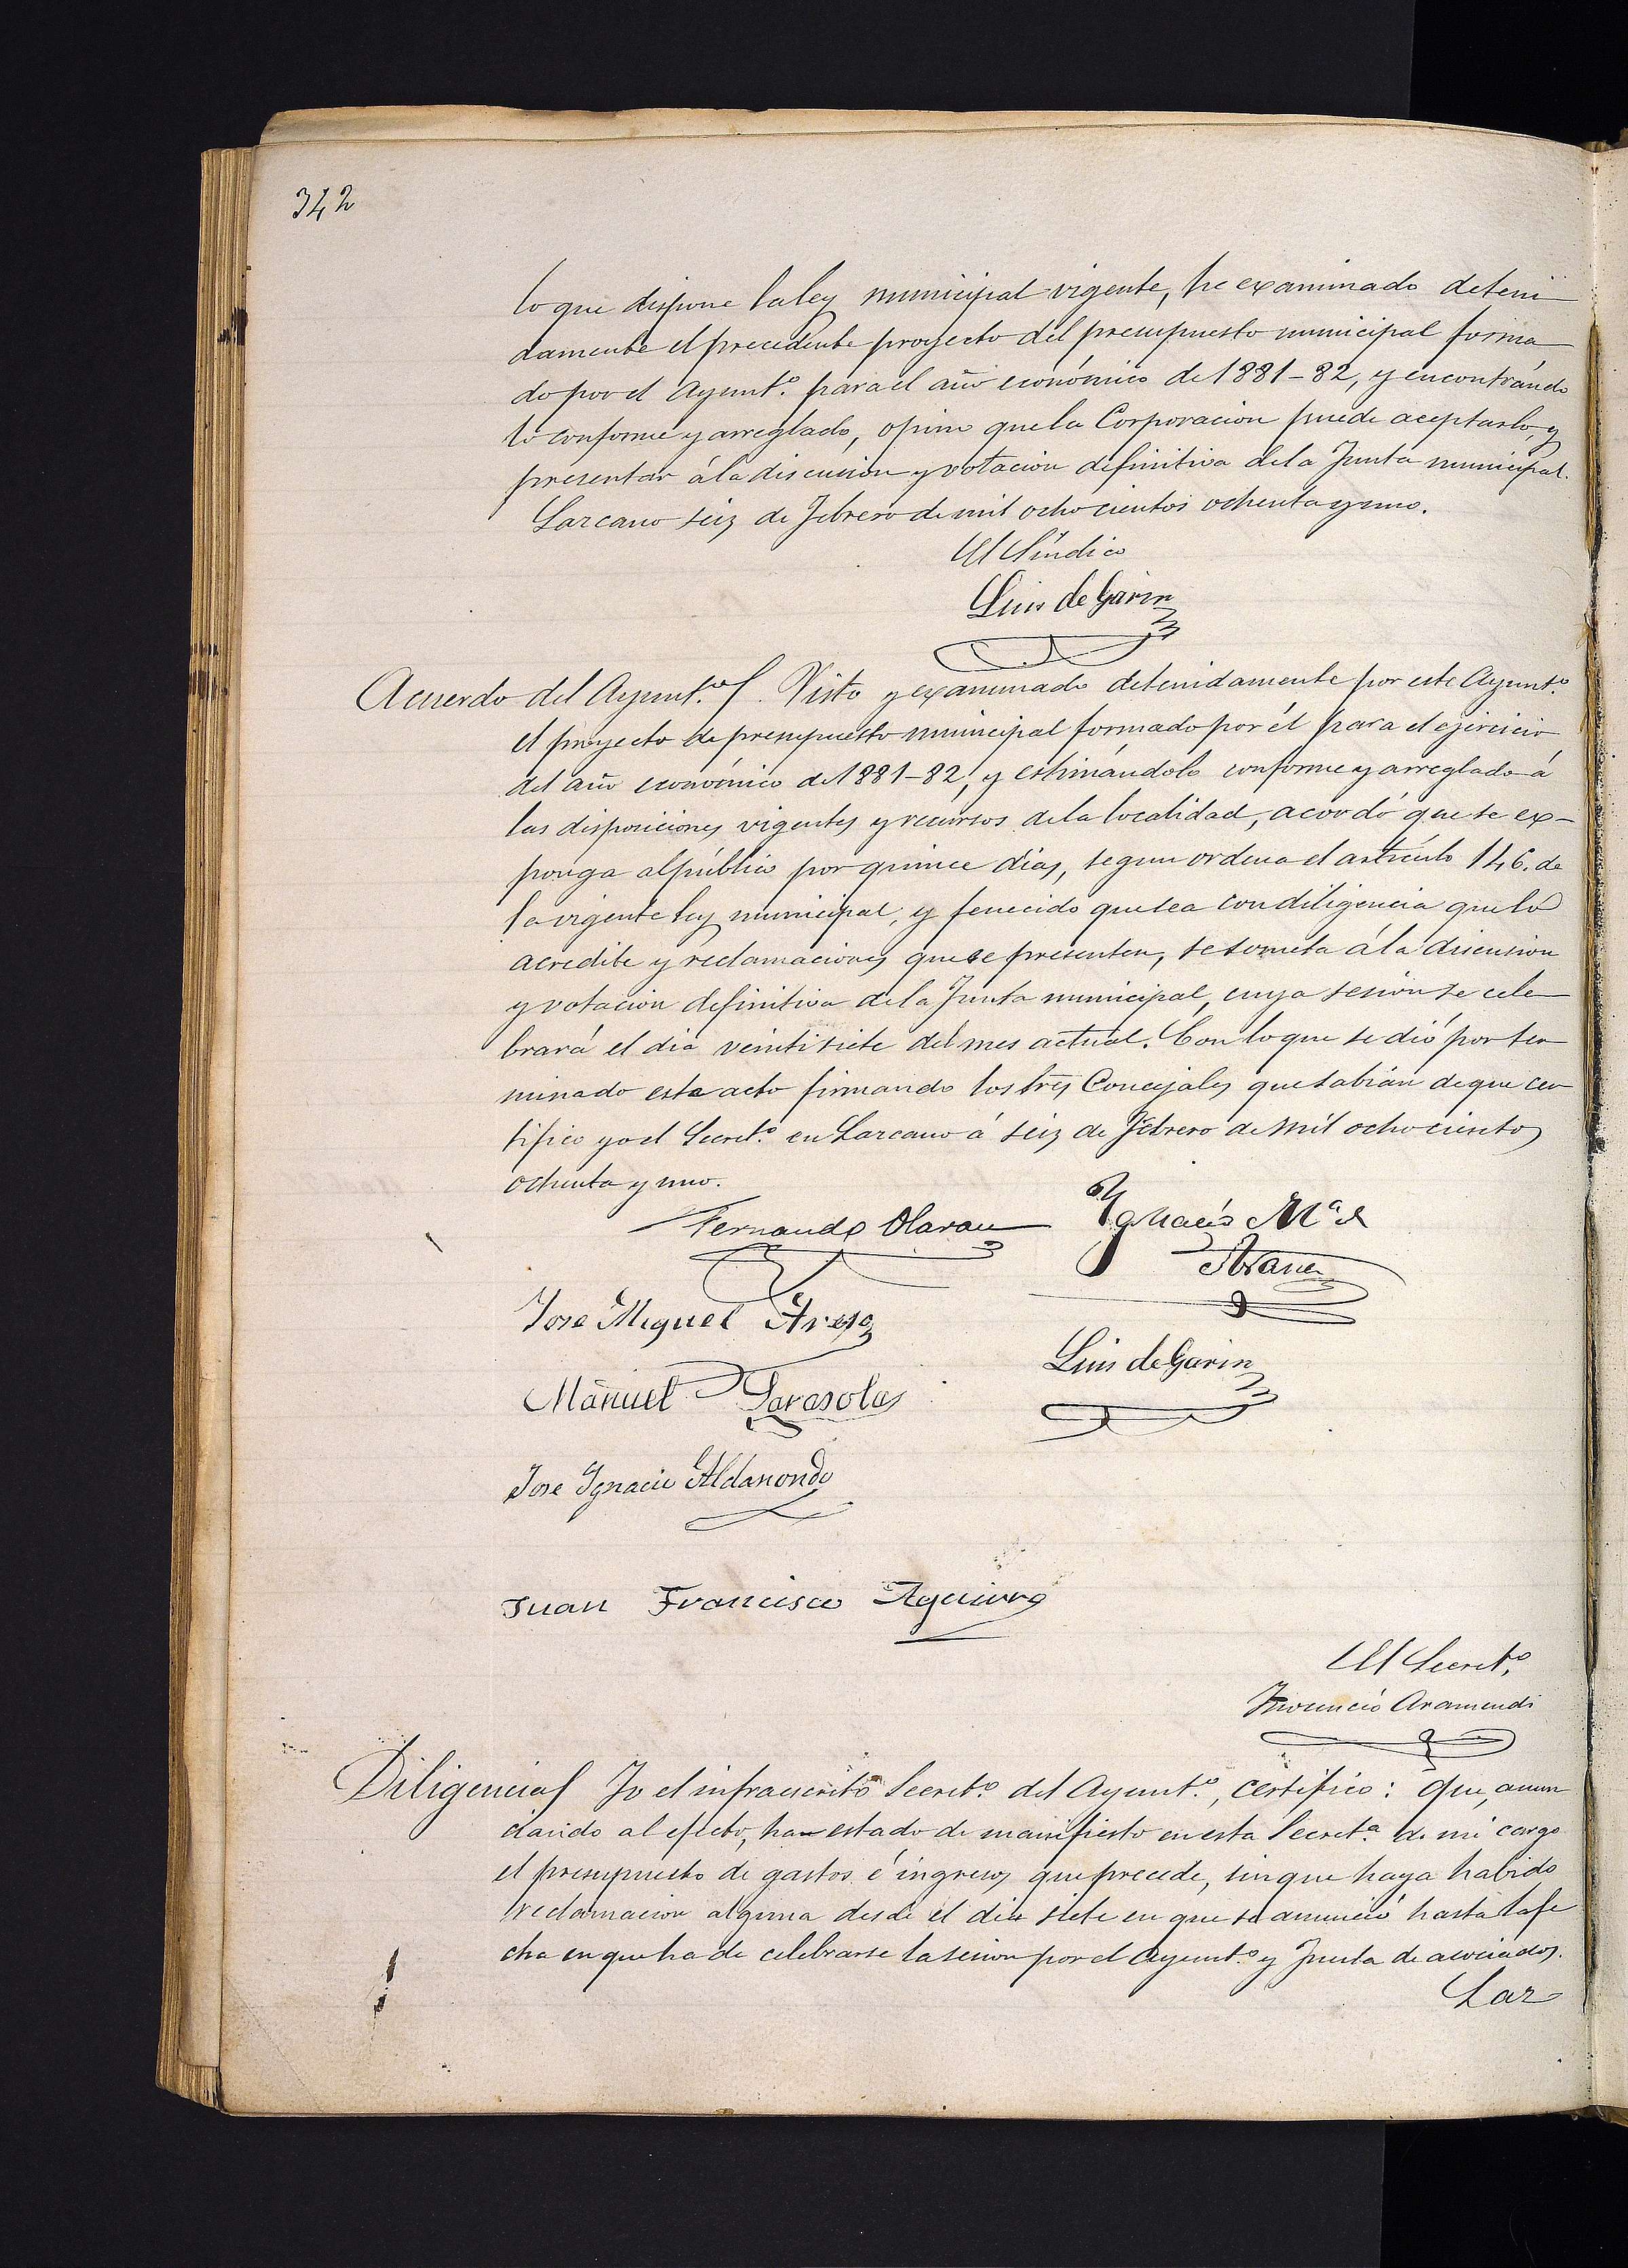 342
lo que dispone la ley municipal vigente, he examinado deteni
damente el precedente proyecto del presupuesto municipal forma
do por el Ayunt.º para el año económico de 1881-82, y encontrándo
lo conforme y arreglado, opino que la Corporacion puede aceptarlo, y
presentar á la discusion y votacion definitiva de la Junta municipal.
Lazcano seiz de Febrero de mil ochocientos ochenta y uno.
El Síndico
Luis de Garin
Acuerdo del Ayunt.º Visto y examinado detenidamente por este Ayunt.º
el proyecto de presupuesto municipal formado por él para el ejercicio
del año económico de 1881-82, y estimándolo conforme y arreglado á
las disposiciones vigentes y recursos de la localidad, acordó que se ex-
ponga al público por quince dias, segun ordena el artículo 146. de
la vigente ley municipal, y fenecido que sea con diligencia que lo
acredite y reclamaciones que se presenten, se someta á la discusion
y votacion definitiva de la Junta municipal, cuya sesion se cele
brará el dia veintisiete del mes actual. Con lo que se dió por ter
minado este acto firmando los tres Concejales que sabían de que cer
tifico yo el Secret.º en Lazcano á seiz de Febrero de mil ochocientos
ochenta y uno.
Fernando Olaran Ygnacio M.ª d
Arana
Jose Miguel
Luis de Garin
Manuel Sarasola
Jose Ygnacio Aldasondo
Juan Francisco Aguirre
El Secret.º
Inocencio Aramendi
Diligencia Yo el infrascrito Secret.º del Ayunt.º, certifico: Que, anun
ciando al efecto, ha estado de manifiesto en esta Secret.ª de mi cargo
el presupuesto de gastos é ingresos que precede, sin que haya habido
reclamacion alguna desde el dia siete en que se anunció hasta la fe
cha en que ha de celebrarse la sesion por el Ayunt.º y Junta de asociados.
Laz